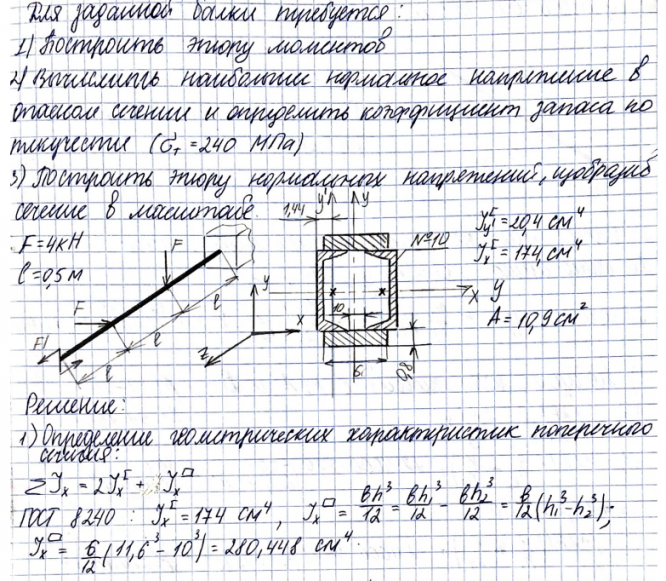 Для заданной балки требуется:
1) Построить эпюру моментов
2) Вычислить наибольшее нормальное напряжение в
опасном сечении и определить коэффициент запаса по
текучести (σт = 240 МПа)
3) Построить эпюру нормальных напряжений, изобразив
сечение в масштабе.
F = 4кН
l = 0,5 м
F
F
Fl
l
l
l
y
x
z
1,44
y'
y
№10
x
10
6
0,8
Jy[ = 20,4 см⁴
Jx[ = 174, см⁴
y
A = 10,9 см²
Решение:
1) Определение геометрических характеристик поперечного
сечения:
ΣJx = 2Jx[ + Jx□
ГОСТ 8240 : Jx[ = 174 см⁴, Jx□ = bh³/12 = bh₁³/12 − bh₂³/12 = b/12 (h₁³ − h₂³);
Jx□ = 6/12 (11,6³ − 10³) = 280,448 см⁴.